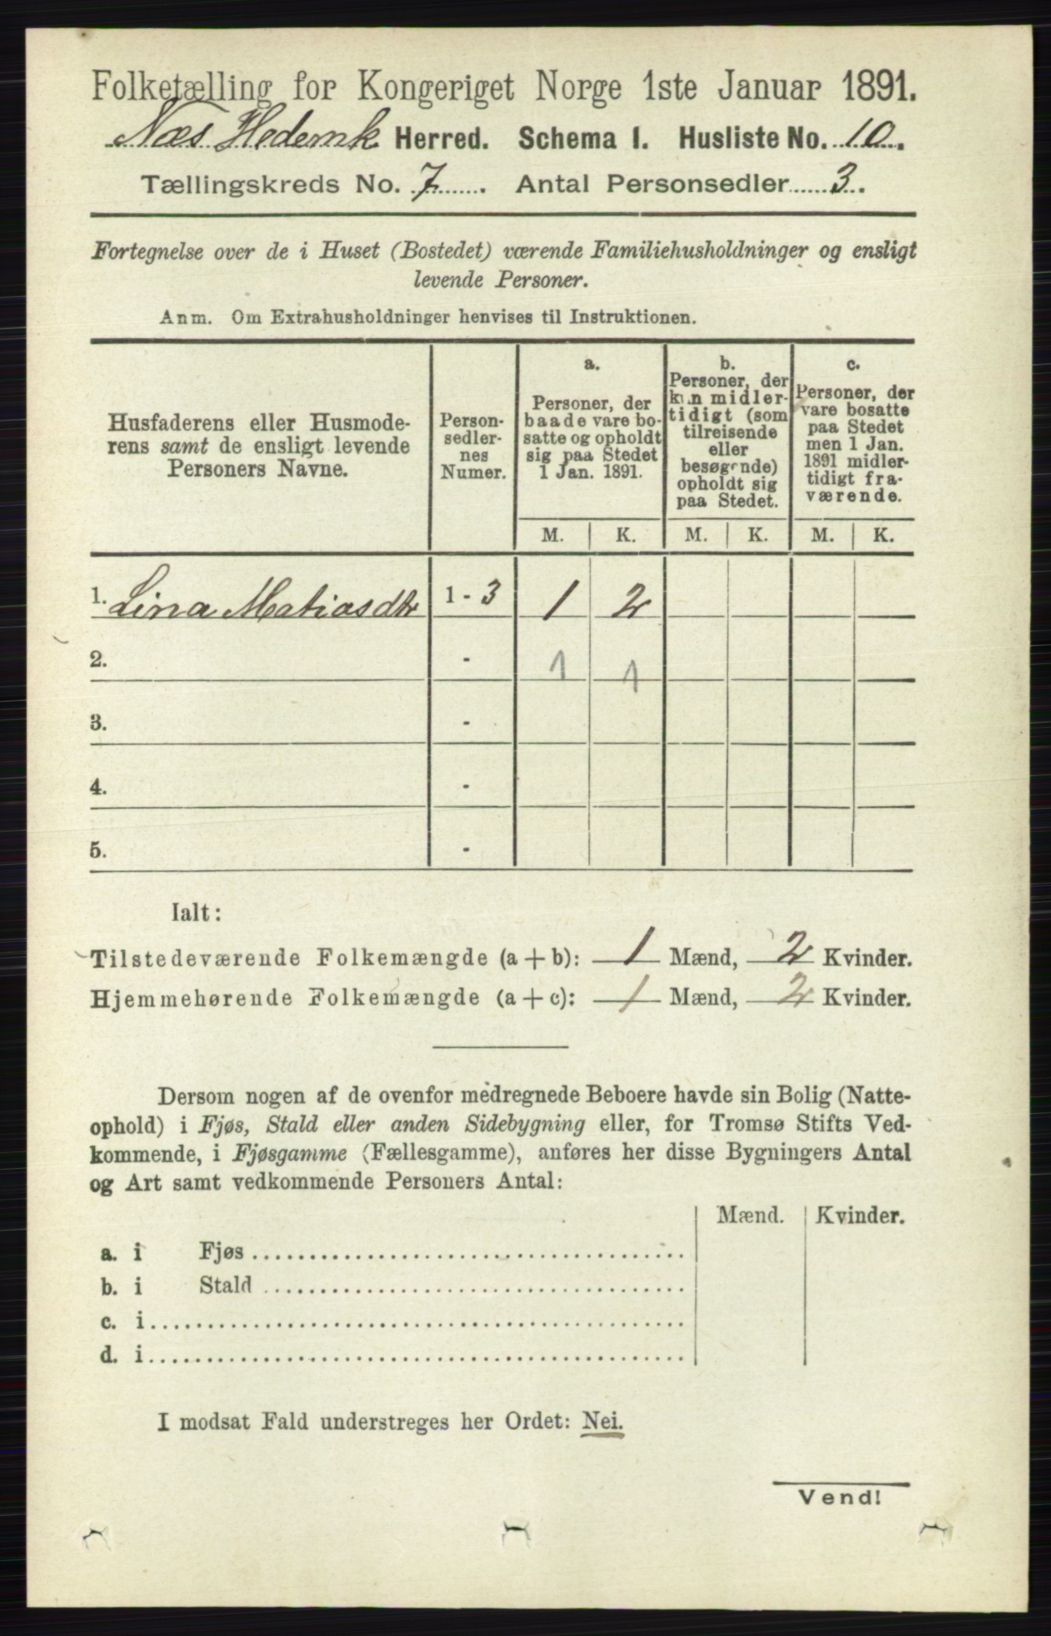 Folketælling for Kongeriget Norge 1ste Januar 1891.
Næs Hedemk. Herred. Schema I. Husliste No. 10.
Tællingskreds No. 7. Antal Personsedler 3.
Fortegnelse over de i Huset (Bostedet) værende Familiehusholdninger og ensligt
levende Personer.
Anm. Om Extrahusholdninger henvises til Instruktionen.
Husfaderens eller Husmode-
rens samt de ensligt levende
Personers Navne.
Person-
sedler-
nes
Numer.
a.
Personer, der
baade vare bo-
satte og opholdt
sig paa Stedet
1 Jan. 1891.
b.
Personer, der
kun midler-
tidigt (som
tilreisende
eller
besøgende)
opholdt sig
paa Stedet.
c.
Personer, der
vare bosatte
paa Stedet
men 1 Jan.
1891 midler-
tidigt fra-
værende.
M. K. M. K. M. K.
1. Lina Matiasdtr 1 - 3 1 2
2. - 1 1
3. -
4. -
5. -
Ialt:
Tilstedeværende Folkemængde (a + b): 1 Mænd, 2 Kvinder.
Hjemmehørende Folkemængde (a + c): 1 Mænd, 2 Kvinder.
Dersom nogen af de ovenfor medregnede Beboere havde sin Bolig (Natte-
ophold) i Fjøs, Stald eller anden Sidebygning eller, for Tromsø Stifts Ved-
kommende, i Fjøsgamme (Fællesgamme), anføres her disse Bygningers Antal
og Art samt vedkommende Personers Antal:
Mænd. Kvinder.
a. i Fjøs
b. i Stald
c. i
d. i
I modsat Fald understreges her Ordet: Nei.
Vend!